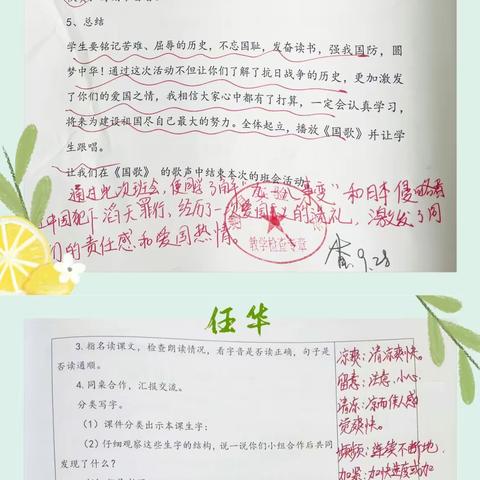 5、总结
学生要铭记苦难、屈辱的历史，不忘国耻，发奋读书，强我国防，圆
梦中华！通过这次活动不但让你们了解了抗日战争的历史，更加激发
了你们的爱国之情，我相信大家心中都有了打算，一定会认真学习，
将来为建设祖国尽自己最大的努力。全体起立，播放《国歌》并让学
生跟唱。
让我们在《国歌》的歌声中结束本次的班会活动
通过此次班会，使同学了解"九一八事变"和日本侵略者
在中国犯下滔天罪行，经历了一次爱国主义的洗礼，激发了同
们的责任感和爱国热情。
教学检查专章
9.28
任华
3. 指名读课文，检查朗读情况，看字音是否读正确，句子是
否读通顺。
4. 同桌合作，汇报交流。
分类写字。
（1）课件分类出示本课生字：
（2）仔细观察这些生字的结构，说一说你们小组合作后共同
发现了什么？
凉爽：清凉爽快。
留意：注意，小心
清凉：凉而使人感
觉爽快。
频频：连续不断地
加紧：加快速度或加